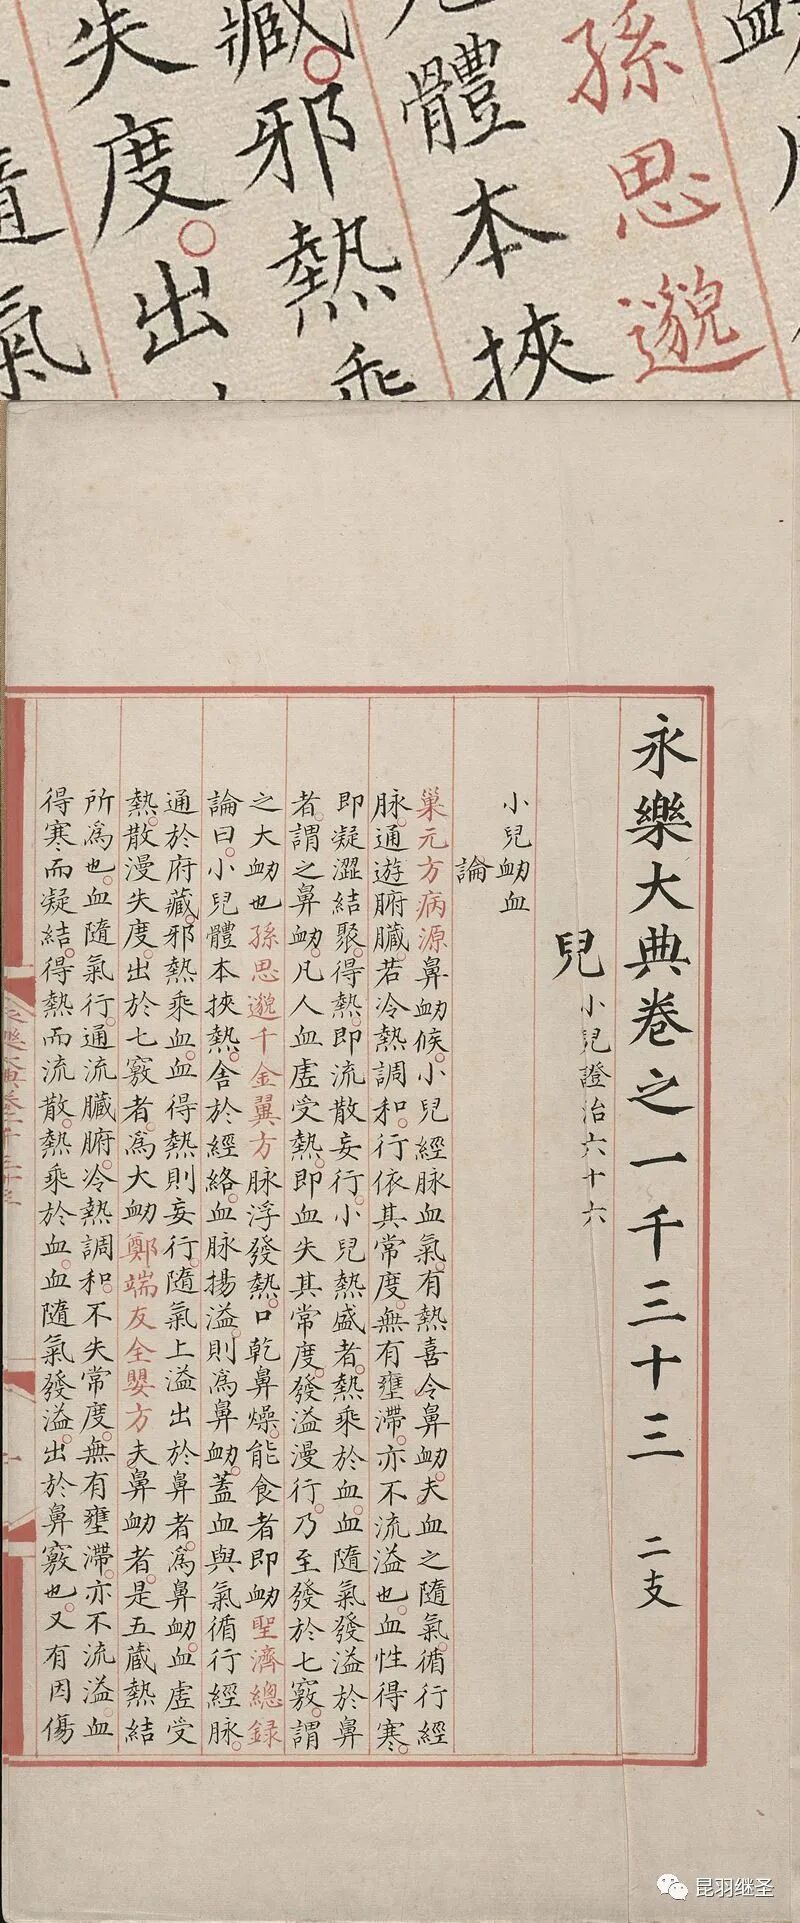 衄
孫思邈
體本挾
藏。邪熱乘
失度。出
隨氣
永樂大典卷之一千三十三 二支
兒 小兒證治六十六
小兒衄血
論
巢元方病源鼻衄候。小兒經脉血氣。有熱喜令鼻衄。夫血之隨氣。循行經
脉。通遊腑臟。若冷熱調和。行依其常度。無有壅滯。亦不流溢也。血性得寒。
即凝澀結聚。得熱。即流散妄行。小兒熱盛者。熱乘於血。血隨氣發溢於鼻
者。謂之鼻衄。凡人血虛受熱。即血失其常度。發溢漫行。乃至發於七竅。謂
之大衄也孫思邈千金翼方脉浮發熱。口乾鼻燥。能食者即衄聖濟總録
論曰。小兒體本挾熱。舍於經絡。血脉揚溢。則為鼻衄。蓋血與氣循行經脉。
通於府藏。邪熱乘血。血得熱則妄行。隨氣上溢出於鼻者。為鼻衄。血虛受
熱。散漫失度。出於七竅者。為大衄鄭端友全嬰方夫鼻衄者。是五蔵熱結
所為也。血隨氣行。通流臟腑。冷熱調和。不失常度。無有壅滯。亦不流溢。血
得寒而凝結。得熱而流散。熱乘於血。血隨氣發溢。出於鼻竅也。又有因傷
昆羽继圣